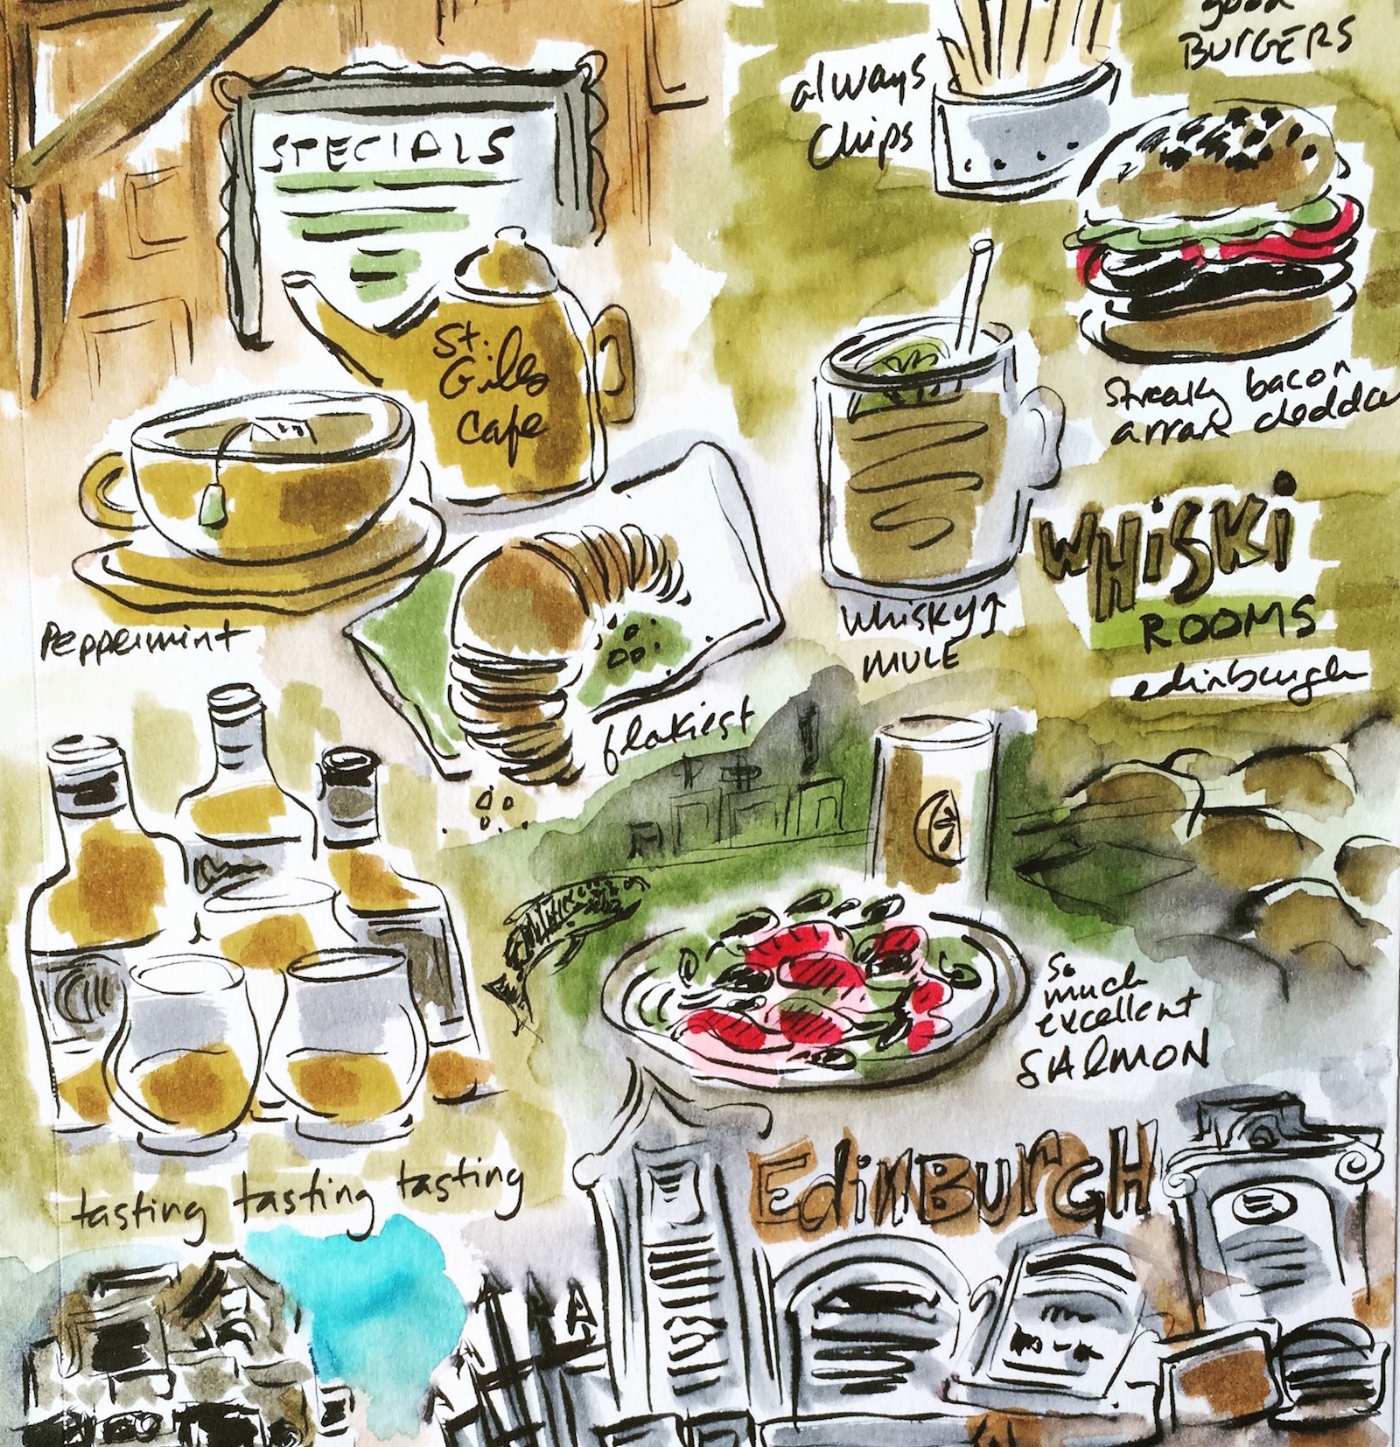 SPECIALS
St.
Giles
Cafe
Peppermint
flakiest
always
Chips
good
BURGERS
Streaky bacon
arran cheddar
WHiSKi
ROOMS
edinburgh
whisky
MULE
So
much
excellent
SALMON
tasting tasting tasting
EdinBurgH